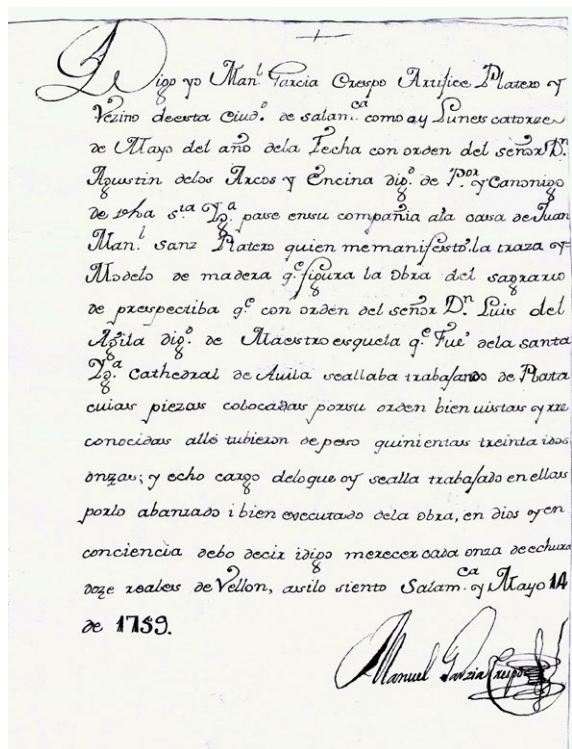 Digo yo Man.l Garcia Crespo Artifice Platero y
Vezino decsta Ciud.o de salam.ca como oy Luness catorze
de Mayo del año dela Fecha con orden del señor D.n
Agustin delos Arcos y Encina dig.o de P.or y Canonigo
de dha s.ta Yg.a pase ensu compañia ala casa de Juan
Man.l Sanz Platero quien memanifesto la traza y
Modelo de madera q.e figura la obra del sagrario
de prespectiba q.e con orden del señor D.n Luis del
Agila dig.o de Maestro esquela q.e Fue dela santa
Yg.a Cathedral de Auila seallaba trabajando de Plata
cuias piezas colocadas porsu orden bien uistas y rre
conocidas allé tubieron de peso quinientas treinta idos
onzas; y echo cargo deloque oy sealla trabajado en ellas
porlo abanzado i bien executado dela obra, en dios y en
conciencia debo decir idigo merecer cada onza de echura
doze reales de Vellon, asilo siento Salam.ca y Mayo 14
de 1759.
Manuel Garzia Crespo